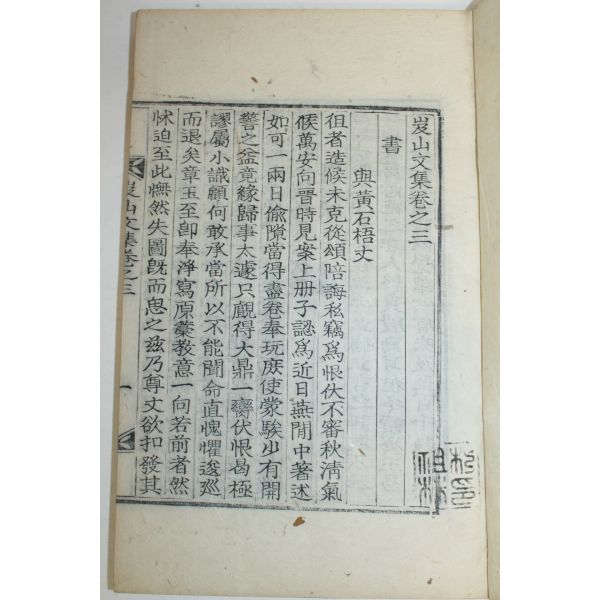 岌山文集卷之三
書
與黃石梧丈
徂者造候未克從頌陪誨私竊爲恨伏不審秋淸氣
候萬安向晋時見案上册子認爲近日燕閒中著述
如可一兩日偸隙當得盡卷奉玩庶使蒙騃少有開
警之益竟緣歸事太遽只觀得大鼎一臠伏恨曷極
謬屬小識顧何敢承當所以不能聞命直愧懼逡巡
而退矣章玉至卽奉淨寫原藁敎意一向若前者然
怵迫至此憮然失圖旣而思之玆乃尊丈欲扣發其
岌山文集卷之三
一